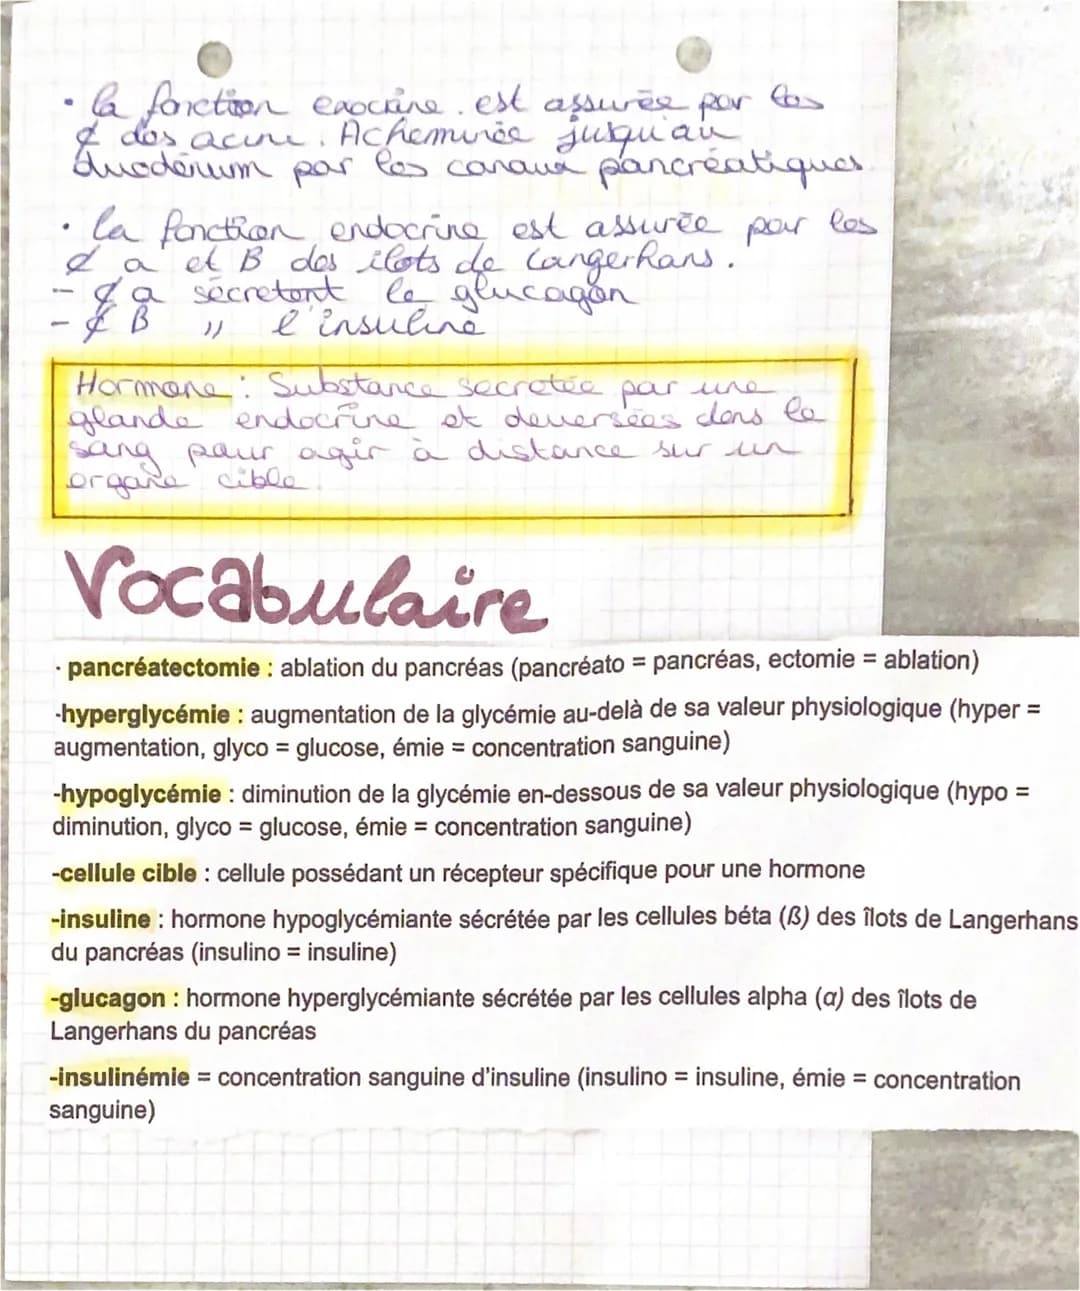 • la fonction exocrine. est assurée par les
¢ des acini. Acheminée jusqu'au
duodénum par les canaux pancréatiques.
• la fonction endocrine est assurée par les
¢ a et B des ilots de Langerhans.
- ¢ a secretent le glucagon
- ¢ B " l'insuline
Hormone : Substance secretée par une
glande endocrine et deversées dans le
sang pour agir à distance sur un
organe cible.
Vocabulaire
· pancréatectomie : ablation du pancréas (pancréato = pancréas, ectomie = ablation)
-hyperglycémie : augmentation de la glycémie au-delà de sa valeur physiologique (hyper =
augmentation, glyco = glucose, émie = concentration sanguine)
-hypoglycémie : diminution de la glycémie en-dessous de sa valeur physiologique (hypo =
diminution, glyco = glucose, émie = concentration sanguine)
-cellule cible : cellule possédant un récepteur spécifique pour une hormone
-insuline : hormone hypoglycémiante sécrétée par les cellules béta (ß) des îlots de Langerhans
du pancréas (insulino = insuline)
-glucagon : hormone hyperglycémiante sécrétée par les cellules alpha (α) des îlots de
Langerhans du pancréas
-insulinémie = concentration sanguine d'insuline (insulino = insuline, émie = concentration
sanguine)